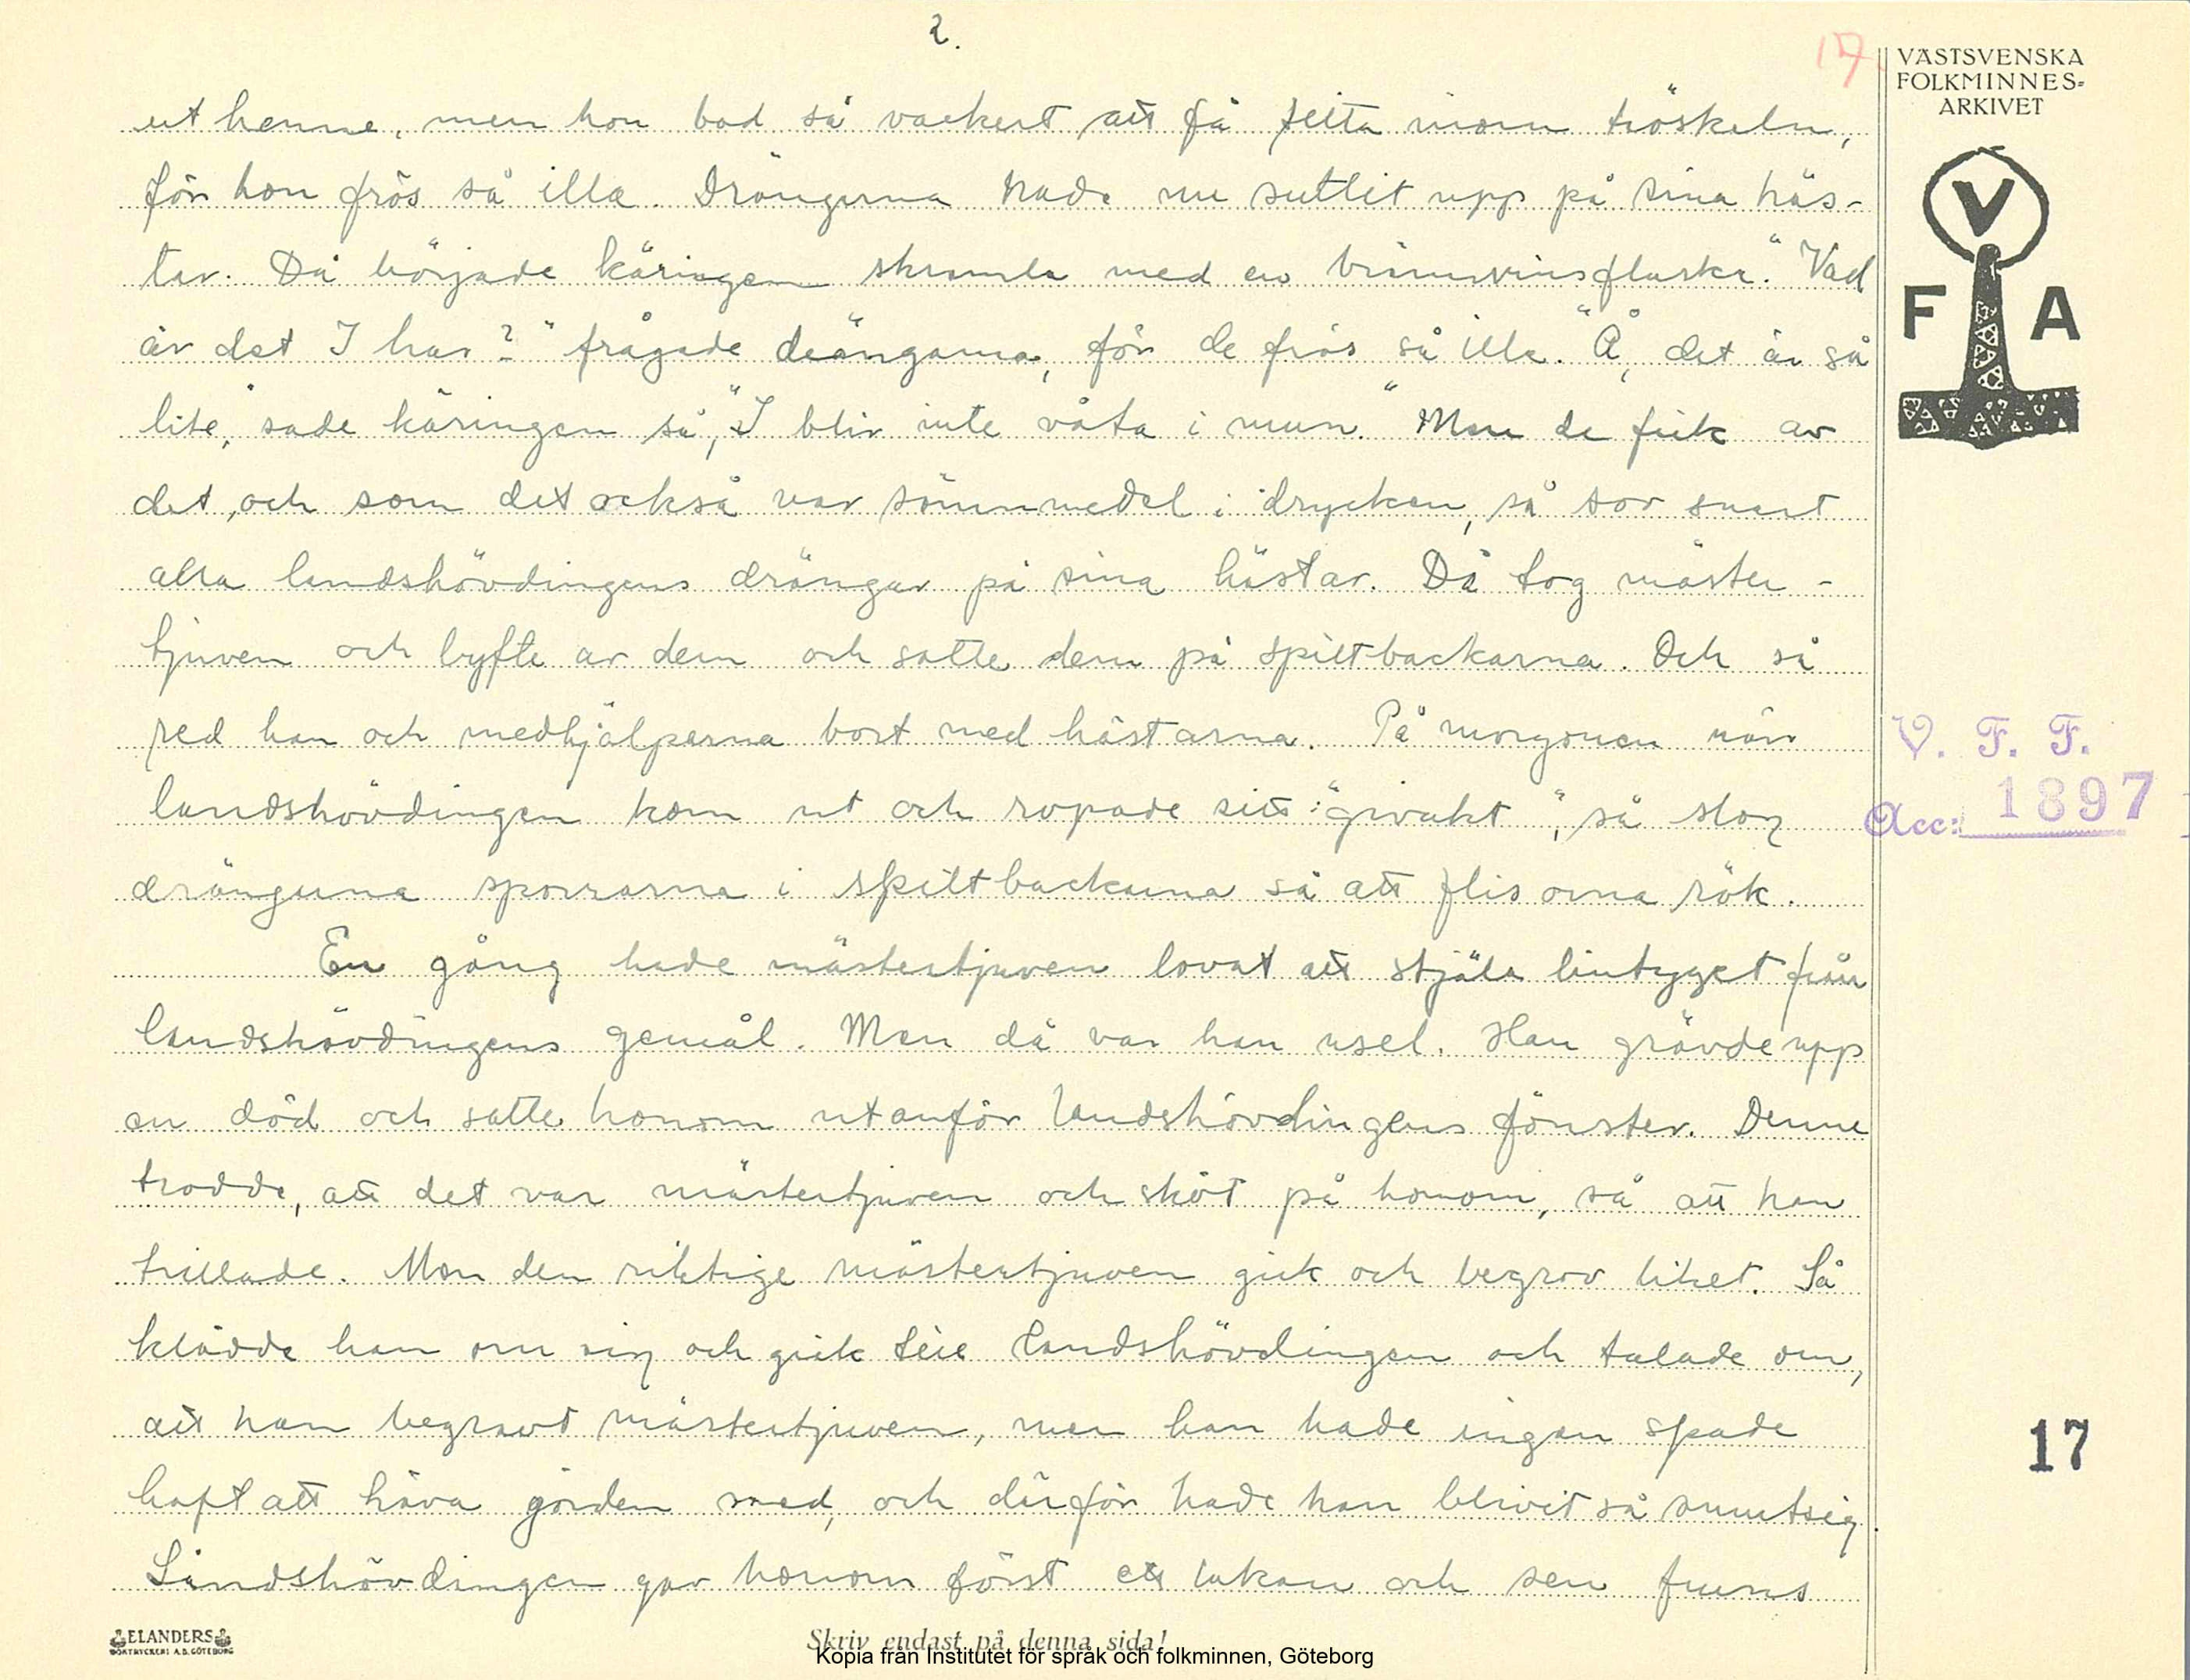 2.
17.
VÄSTSVENSKA
FOLKMINNES-
ARKIVET
V
F A
ut henne, men hon bad så vackert att få sitta inom tröskeln,
för hon frös så illa. Drängarna hade nu suttit upp på sina häs-
tar. Då började käringen skramla med en brännvinsflaska. "Vad
är det I har?" frågade drängarna, för de frös så illa. "Å, det är så
lite," sade käringen så, "I blir inte våta i mun." Men de fick av
det, och som det också var sömnmedel i drycken, så sov snart
alla landshövdingens drängar på sina hästar. Då tog mäster-
tjuven och lyfte av dem och satte dem på spiltbackarna. Och så
red han och medhjälparna bort med hästarna. På morgonen när
landshövdingen kom ut och ropade sitt: "givakt", så slog
drängarna sporrarna i spiltbackarna så att flisorna rök.
En gång hade mästertjuven lovat att stjäla lintyget från
landshövdingens gemål. Men då var han usel. Han grävde upp
en död och satte honom utanför landshövdingens fönster. Denne
trodde, att det var mästertjuven och sköt på honom, så att han
trillade. Men den riktige mästertjuven gick och begrov liket. Så
klädde han om sig och gick till landshövdingen och talade om,
att han begravt mästertjuven, men han hade ingen spade
haft att häva görden med, och därför hade han blivit så smutsig.
Landshövdingen gav honom först ett lakan och sen fruns
V. F. F.
Acc: 1897
17
ELANDERS
BOKTRYCKERI A.B. GÖTEBORG
Skriv endast på denna sida!
Kopia från Institutet för språk och folkminnen, Göteborg